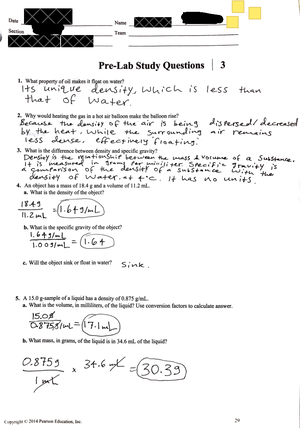 Date
Name
Section
Team
Pre-Lab Study Questions | 3
1. What property of oil makes it float on water?
Its unique density, which is less than
that of water.
2. Why would heating the gas in a hot air balloon make the balloon rise?
Because the density of the air is being dispersed/decreased
by the heat. While the surrounding air remains
less dense, effectively floating.
3. What is the difference between density and specific gravity?
Density is the relationship between the mass & volume of a substance.
It is measured in grams per milliliter. Specific gravity is
a comparison of the density of a substance with the
density of water at 4°C. It has no units.
4. An object has a mass of 18.4 g and a volume of 11.2 mL.
a. What is the density of the object?
18.4g
11.2mL = 1.64g/mL
b. What is the specific gravity of the object?
1.64g/mL
1.00g/mL = 1.64
c. Will the object sink or float in water? Sink.
5. A 15.0 g-sample of a liquid has a density of 0.875 g/mL.
a. What is the volume, in milliliters, of the liquid? Use conversion factors to calculate answer.
15.0g
0.875g/mL = 17.1mL
b. What mass, in grams, of the liquid is in 34.6 mL of the liquid?
0.875g
1mL x 34.6mL = 30.3g
Copyright © 2014 Pearson Education, Inc.
29